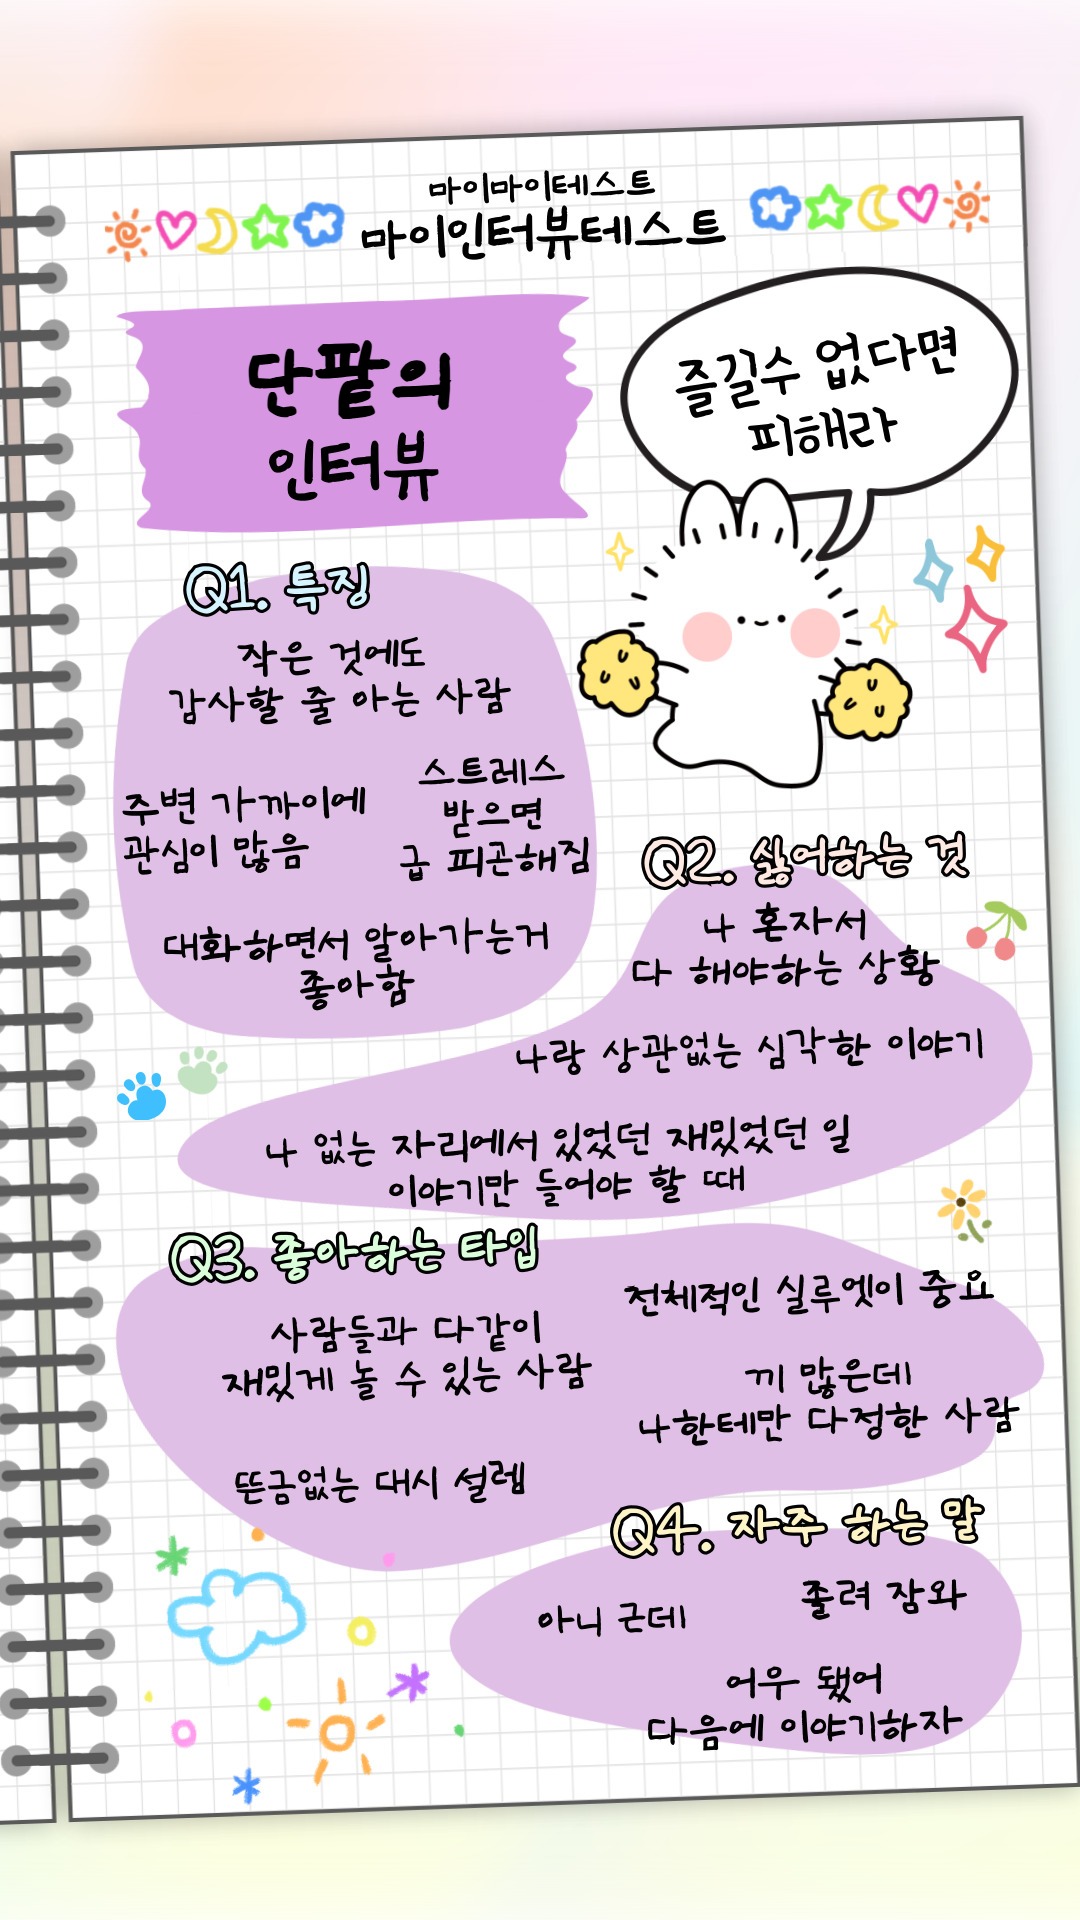 마이마이테스트
마이인터뷰테스트
단팥의
인터뷰
즐길수 없다면
피해라
Q1. 특징
작은 것에도
감사할 줄 아는 사람
주변 가까이에
관심이 많음
스트레스
받으면
급 피곤해짐
대화하면서 알아가는거
좋아함
Q2. 싫어하는 것
나 혼자서
다 해야하는 상황
나랑 상관없는 심각한 이야기
나 없는 자리에서 있었던 재밌었던 일
이야기만 들어야 할 때
Q3. 좋아하는 타입
전체적인 실루엣이 중요
사람들과 다같이
재밌게 놀 수 있는 사람
끼 많은데
나한테만 다정한 사람
뜬금없는 대시 설렘
Q4. 자주 하는 말
졸려 잠와
아니 근데
어우 됐어
다음에 이야기하자